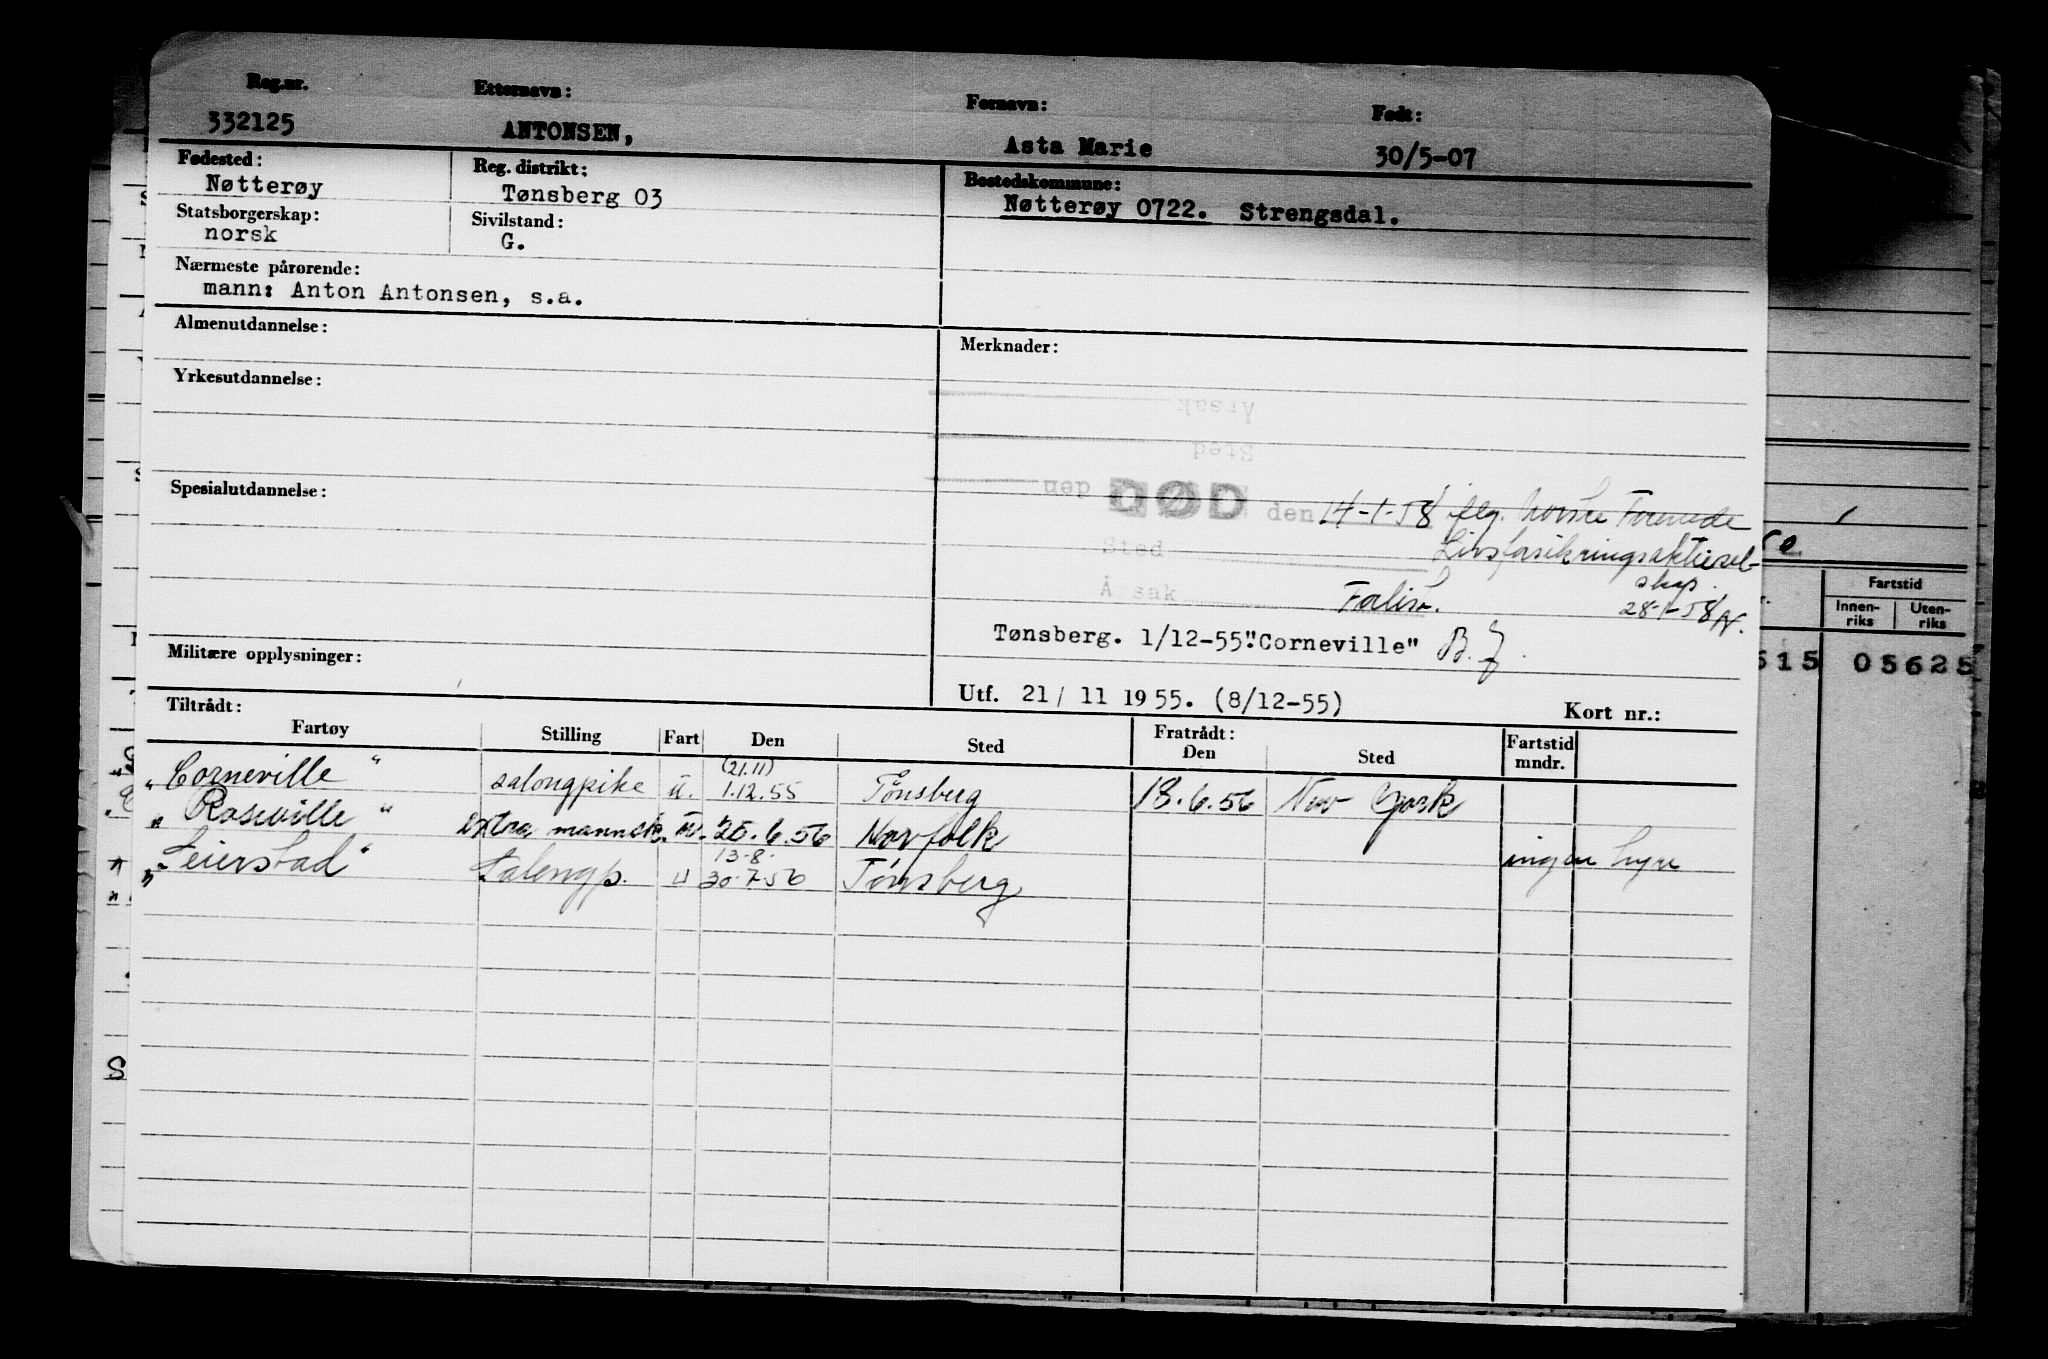 Reg.nr. Etternavn: Fornavn: Født:
332125 ANTONSEN, Asta Marie 30/5-07
Fødested: Reg. distrikt: Bostedskommune:
Nøtterøy Tønsberg 03 Nøtterøy 0722. Strengsdal.
Statsborgerskap: Sivilstand:
norsk G.
Nærmeste pårørende:
mann: Anton Antonsen, s.a.
Almenutdannelse:
Merknader:
Yrkesutdannelse:
Årsak
Sted
den
Spesialutdannelse:
DØD den 14-1-58 iflg. Norske Forenede
Sted Livsforsikringsaktiesel-
Årsak skap.
28-1-58
Tønsberg. 1/12-55."Corneville" B.J.
Militære opplysninger:
Utf. 21/ 11 1955. (8/12-55) Kort nr.:
Tiltrådt: Fratrådt:
Fartøy Stilling Fart Den Sted Den Sted Fartstid mndr.
(21.11)
"Corneville" salongpike u. 1.12.55 Tønsberg 18.6.56 New York
"Roseville" extra mannsk. u. 25.6.56 Norfolk ingen hyre
13-8-
"Leiesstad" Salongp. u 30-7-56 Tønsberg
Fartstid
Innen-riks Uten-riks
515 05625
S